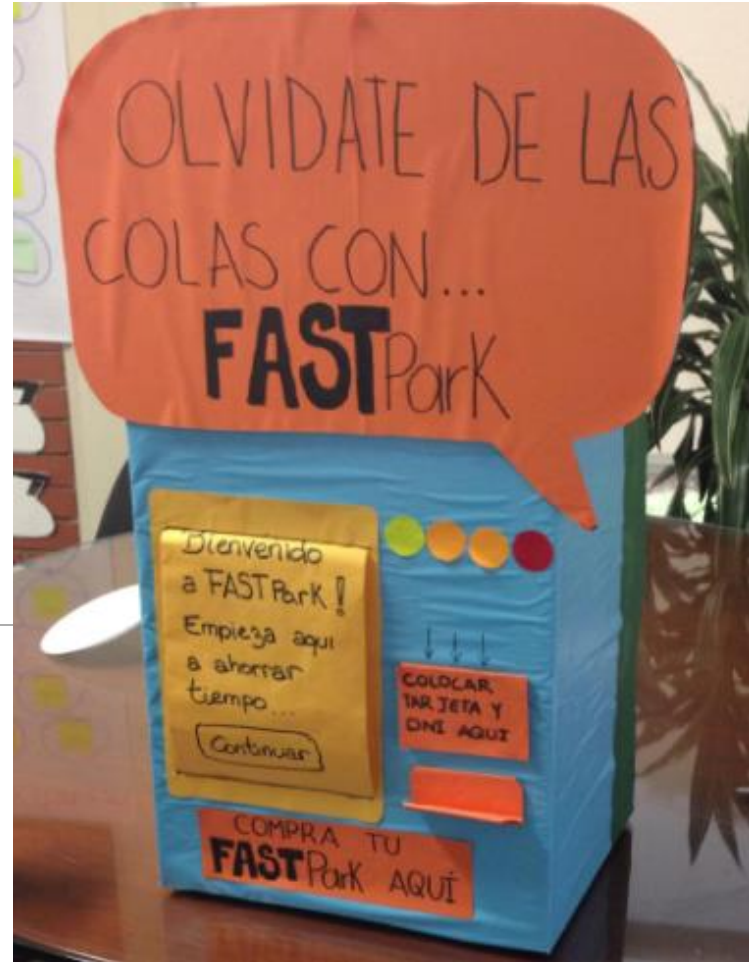 OLVIDATE DE LAS
COLAS CON...
FASTPark
Bienvenido
a FASTPark!
Empieza aqui
a ahorrar
tiempo...
Continuar
COLOCAR
TARJETA Y
DNI AQUI
COMPRA TU
FASTPark AQUÍ